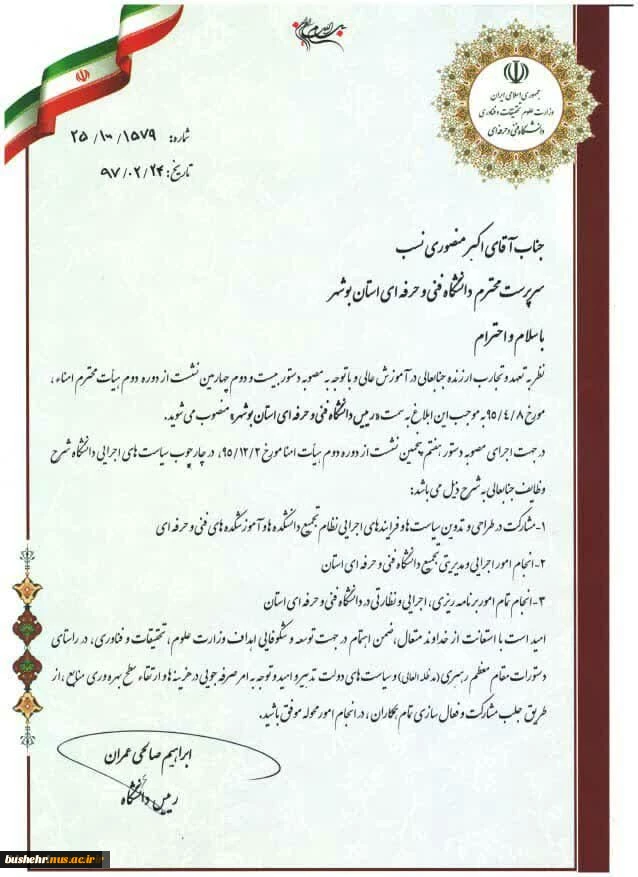 جمهوری اسلامی ایران
وزارت علوم تحقیقات و فناوری
دانشگاه فنی و حرفه ای
شماره: ۲۵/۱۰۰/۱۵۷۹
تاریخ: ۹۷/۰۲/۲۴
جناب آقای اکبر منصوری نسب
سرپرست محترم دانشگاه فنی و حرفه ای استان بوشهر
با سلام و احترام
نظر به تعهد و تجارب ارزنده جنابعالی در آموزش عالی و با توجه به مصوبه دستور بیست و دوم چهارمین نشست از دوره دوم هیأت محترم امناء ،
مورخ ۹۵/۴/۸ به موجب این ابلاغ به سمت «رییس دانشگاه فنی و حرفه ای استان بوشهر» منصوب می شوید.
در جهت اجرای مصوبه دستور هفتم پنجمین نشست از دوره دوم هیأت امنا مورخ ۹۵/۱۲/۲، در چارچوب سیاست های اجرایی دانشگاه شرح
وظایف جنابعالی به شرح ذیل می باشد:
۱-مشارکت در طراحی و تدوین سیاست ها و فرایندهای اجرایی نظام تجمیع دانشکده ها و آموزشکده های فنی و حرفه ای
۲-انجام امور اجرایی و مدیریتی تجمیع دانشگاه فنی و حرفه ای استان
۳-انجام تمام امور برنامه ریزی، اجرایی و نظارتی در دانشگاه فنی و حرفه ای استان
امید است با استعانت از خداوند متعال، ضمن اهتمام در جهت توسعه و شکوفایی اهداف وزارت علوم، تحقیقات و فناوری، در راستای
دستورات مقام معظم رهبری (مدظله العالی) و سیاست های دولت تدبیر و امید و توجه به امر صرفه جویی در هزینه ها و ارتقاء سطح بهره وری منابع ، از
طریق جلب مشارکت و فعال سازی تمام همکاران، در انجام امور محوله موفق باشید.
ابراهیم صالحی عمران
رییس دانشگاه
bushehr.nus.ac.ir